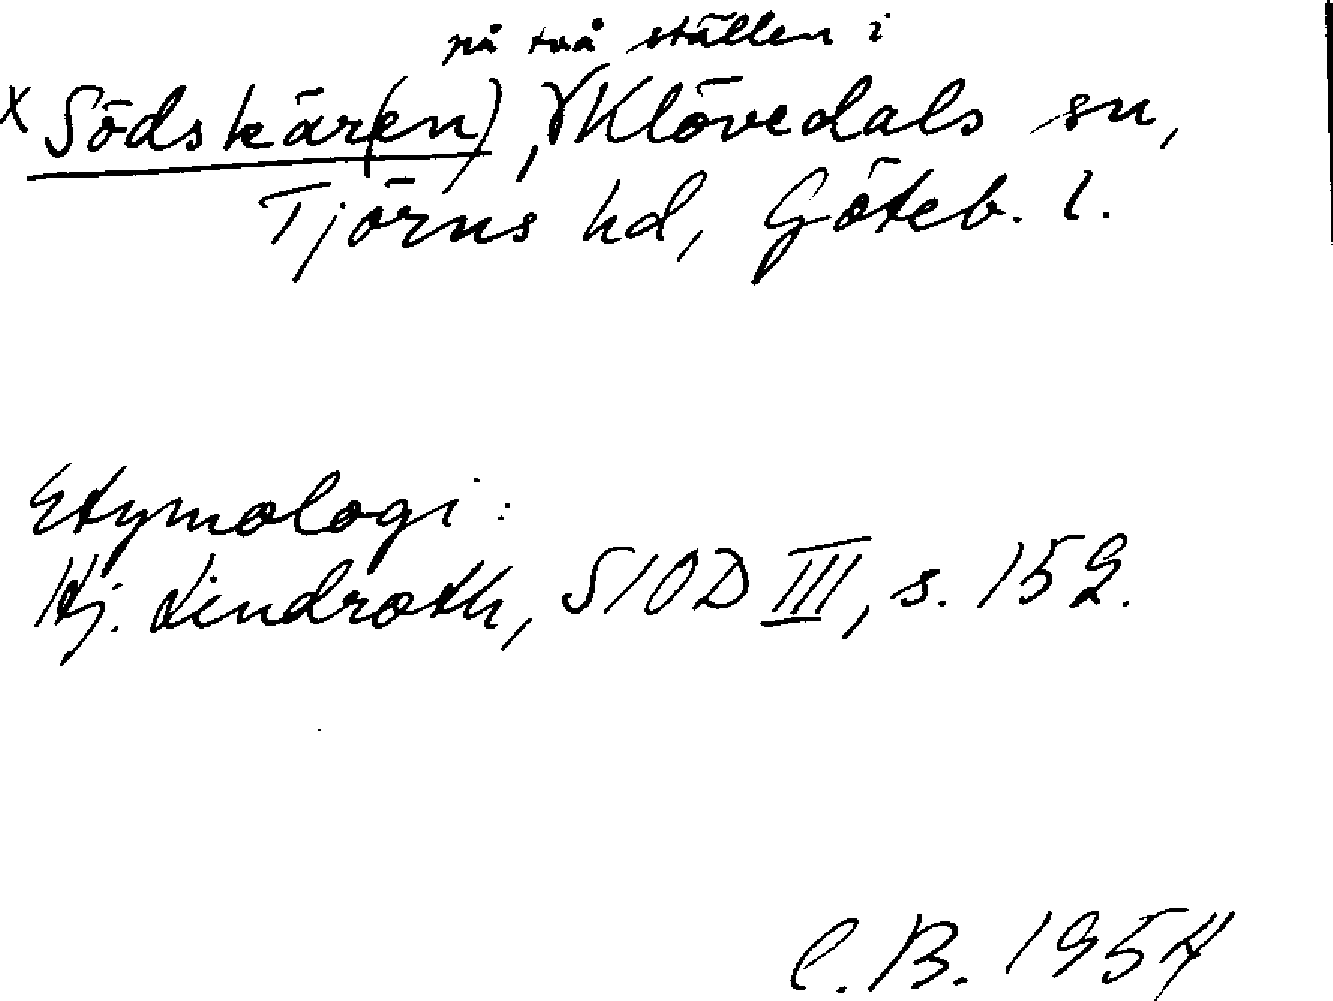 på två ställen i
x Södskär(en), Klövedals sn,
Tjörns hd, Göteb. l.
Etymologi:
Hj. Lindroth, SIOD III, s. 152.
C. B. 1954